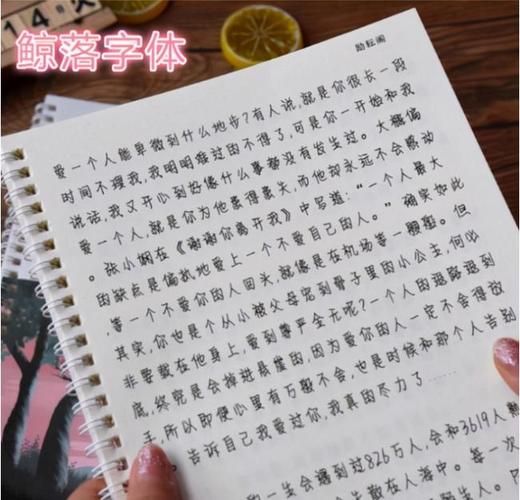 14
鲸落字体
励耘阁
爱一个人能卑微到什么地步?有人说,就是你很长一段
时间不理我,我明明难过的不得了,可是你一开始和我
说话,我又开心到好像什么事都没有发生过。大概偏
爱一个人,就是你为他豪得豪失,而他却永远不会感动
。张小娴在《谢谢你离开我》中写道:“一个人最大
的缺点是偏执地爱上一个不爱自己的人。”确实如此
,等一个不爱你的人回头,就像是在机场等一艘船。但
其实,你也是个从小被父母宠到骨子里的小公主,何必
非要栽在他身上,爱到尊严全无呢?一个人的退路退到
底,终究是会掉进悬崖的,因为爱你的人一定不舍得放
手,所以即便心里有万般不舍,也是时候和那个人告别
。告诉自己我爱过你,我真的尽力了……
一生会遇到过826万人,会和3619人熟
每 都在人海中。每一